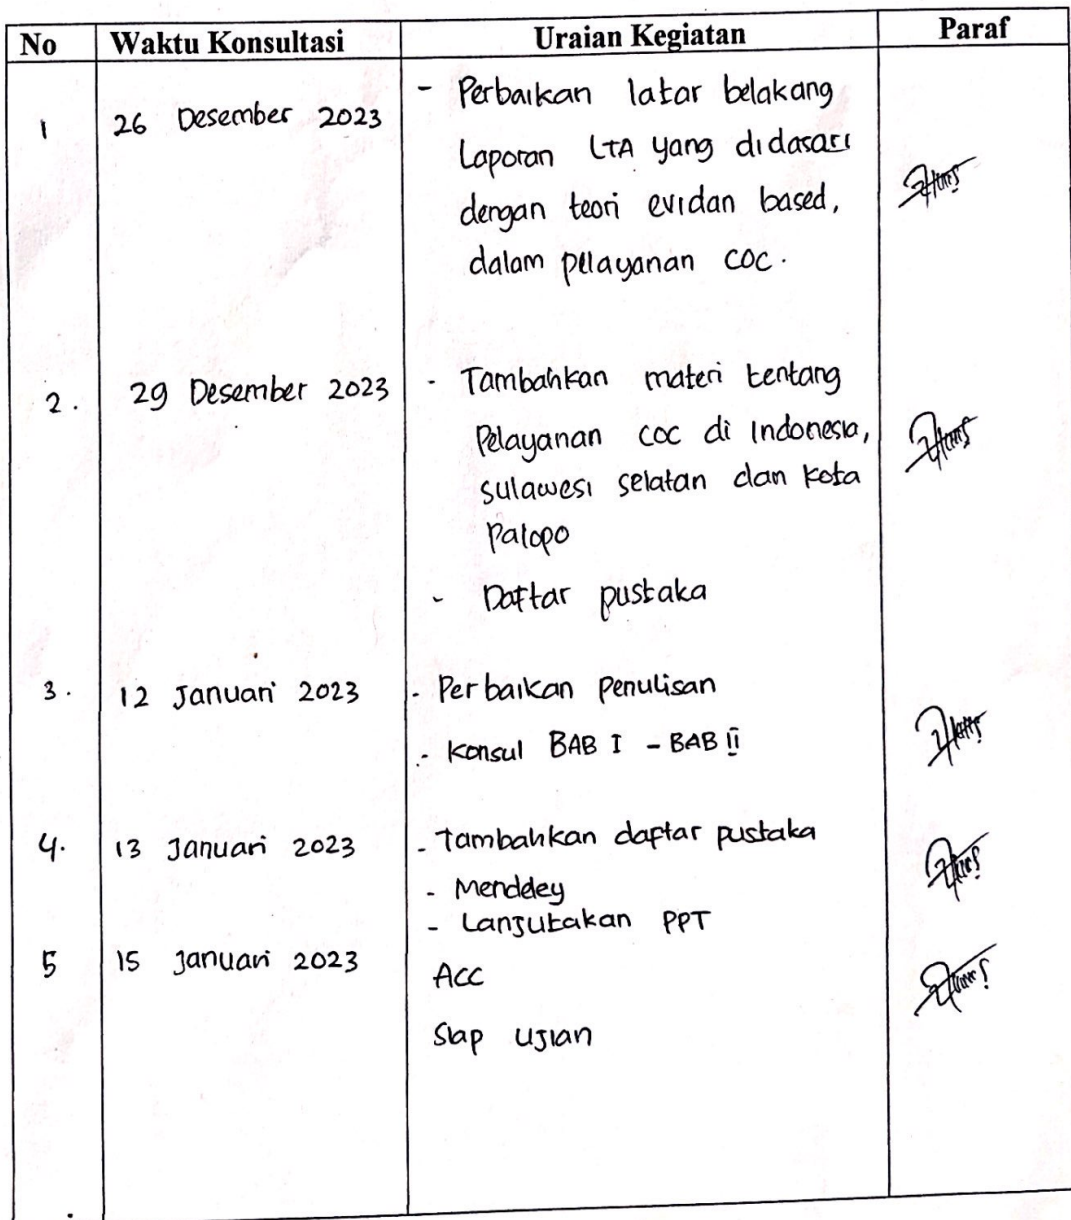 No Waktu Konsultasi Uraian Kegiatan Paraf
1 26 Desember 2023 - Perbaikan latar belakang
Laporan LTA yang didasari
dengan teori evidan based,
dalam pelayanan COC.
2. 29 Desember 2023 - Tambahkan materi tentang
Pelayanan COC di Indonesia,
Sulawesi selatan dan Kota
Palopo
- Daftar pustaka
3. 12 Januari 2023 - Perbaikan penulisan
- Konsul BAB I - BAB II
4. 13 Januari 2023 - Tambahkan daftar pustaka
- Menddey
- Lanjutakan PPT
5 15 Januari 2023 Acc
Siap Ujian